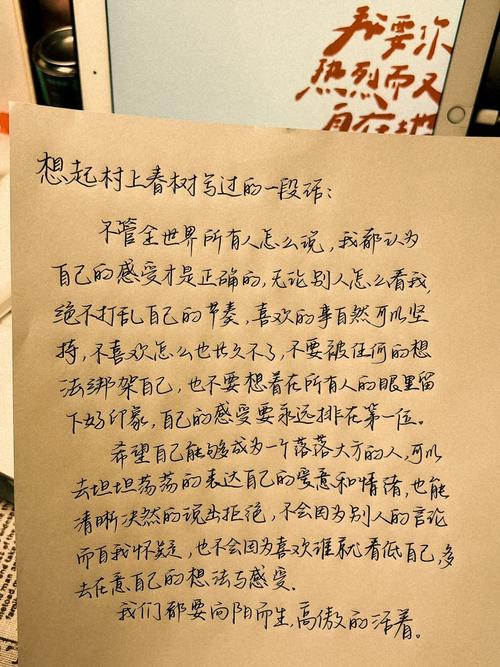 我要你
热烈而又
自在地
想起村上春树写过的一段话：
不管全世界所有人怎么说，我都认为
自己的感受才是正确的，无论别人怎么看我，
绝不打乱自己的节奏，喜欢的事自然可以坚
持，不喜欢怎么也长久不了，不要被任何的想
法绑架自己，也不要想着在所有人的眼里留
下好印象，自己的感受要永远排在第一位。
希望自己能够成为一个落落大方的人，可以
去坦坦荡荡的表达自己的爱意和情绪，也能
清晰决然的说出拒绝，不会因为别人的言论
而自我怀疑，也不会因为喜欢谁就看低自己，多
去在意自己的想法与感受。
我们都要向阳而生，高傲的活着。